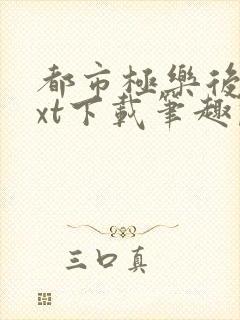 都市極樂後
xt下載筆趣
三口真